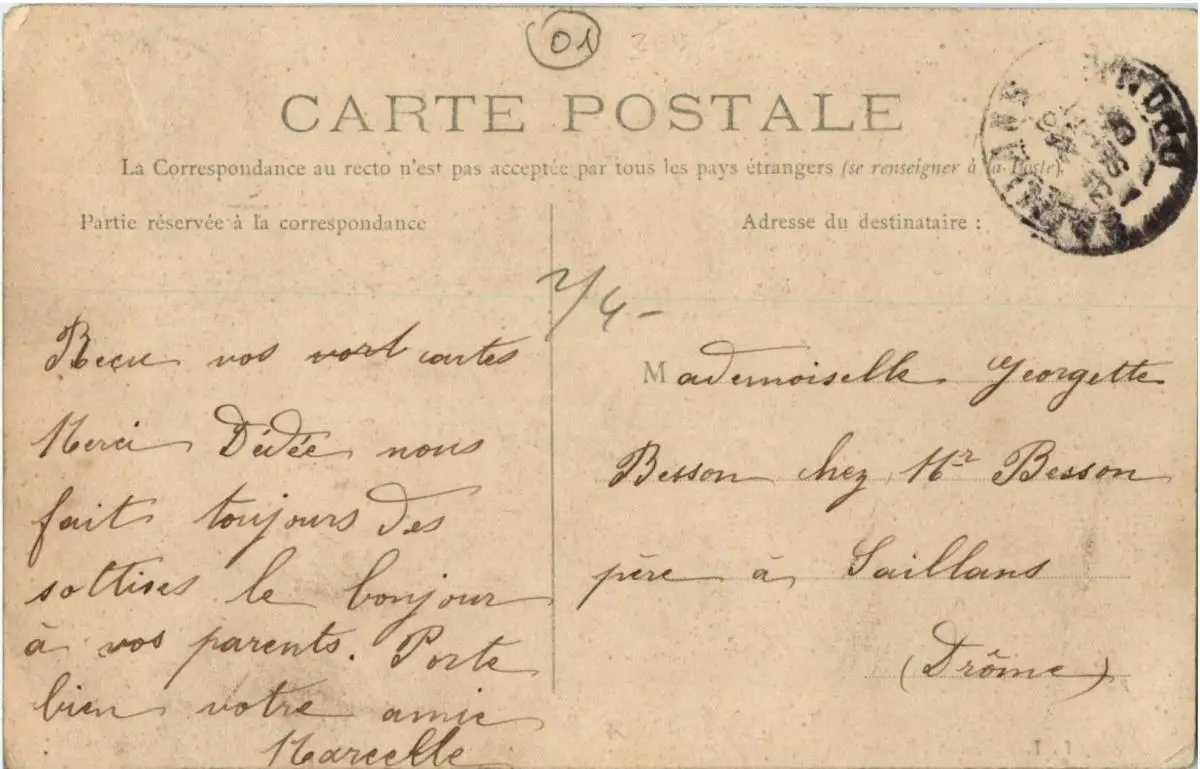 01
CARTE POSTALE
La Correspondance au recto n'est pas acceptée par tous les pays étrangers (se renseigner à la Poste).
Partie réservée à la correspondance
Adresse du destinataire :
2/4-
Reçu vos cartes
Merci Dédée nous
fait toujours des
sottises le bonjour
à vos parents. Porte
bien votre amie
Marcelle
Mademoiselle Georgette
Besson chez Mr Besson
père à Saillans
(Drôme)